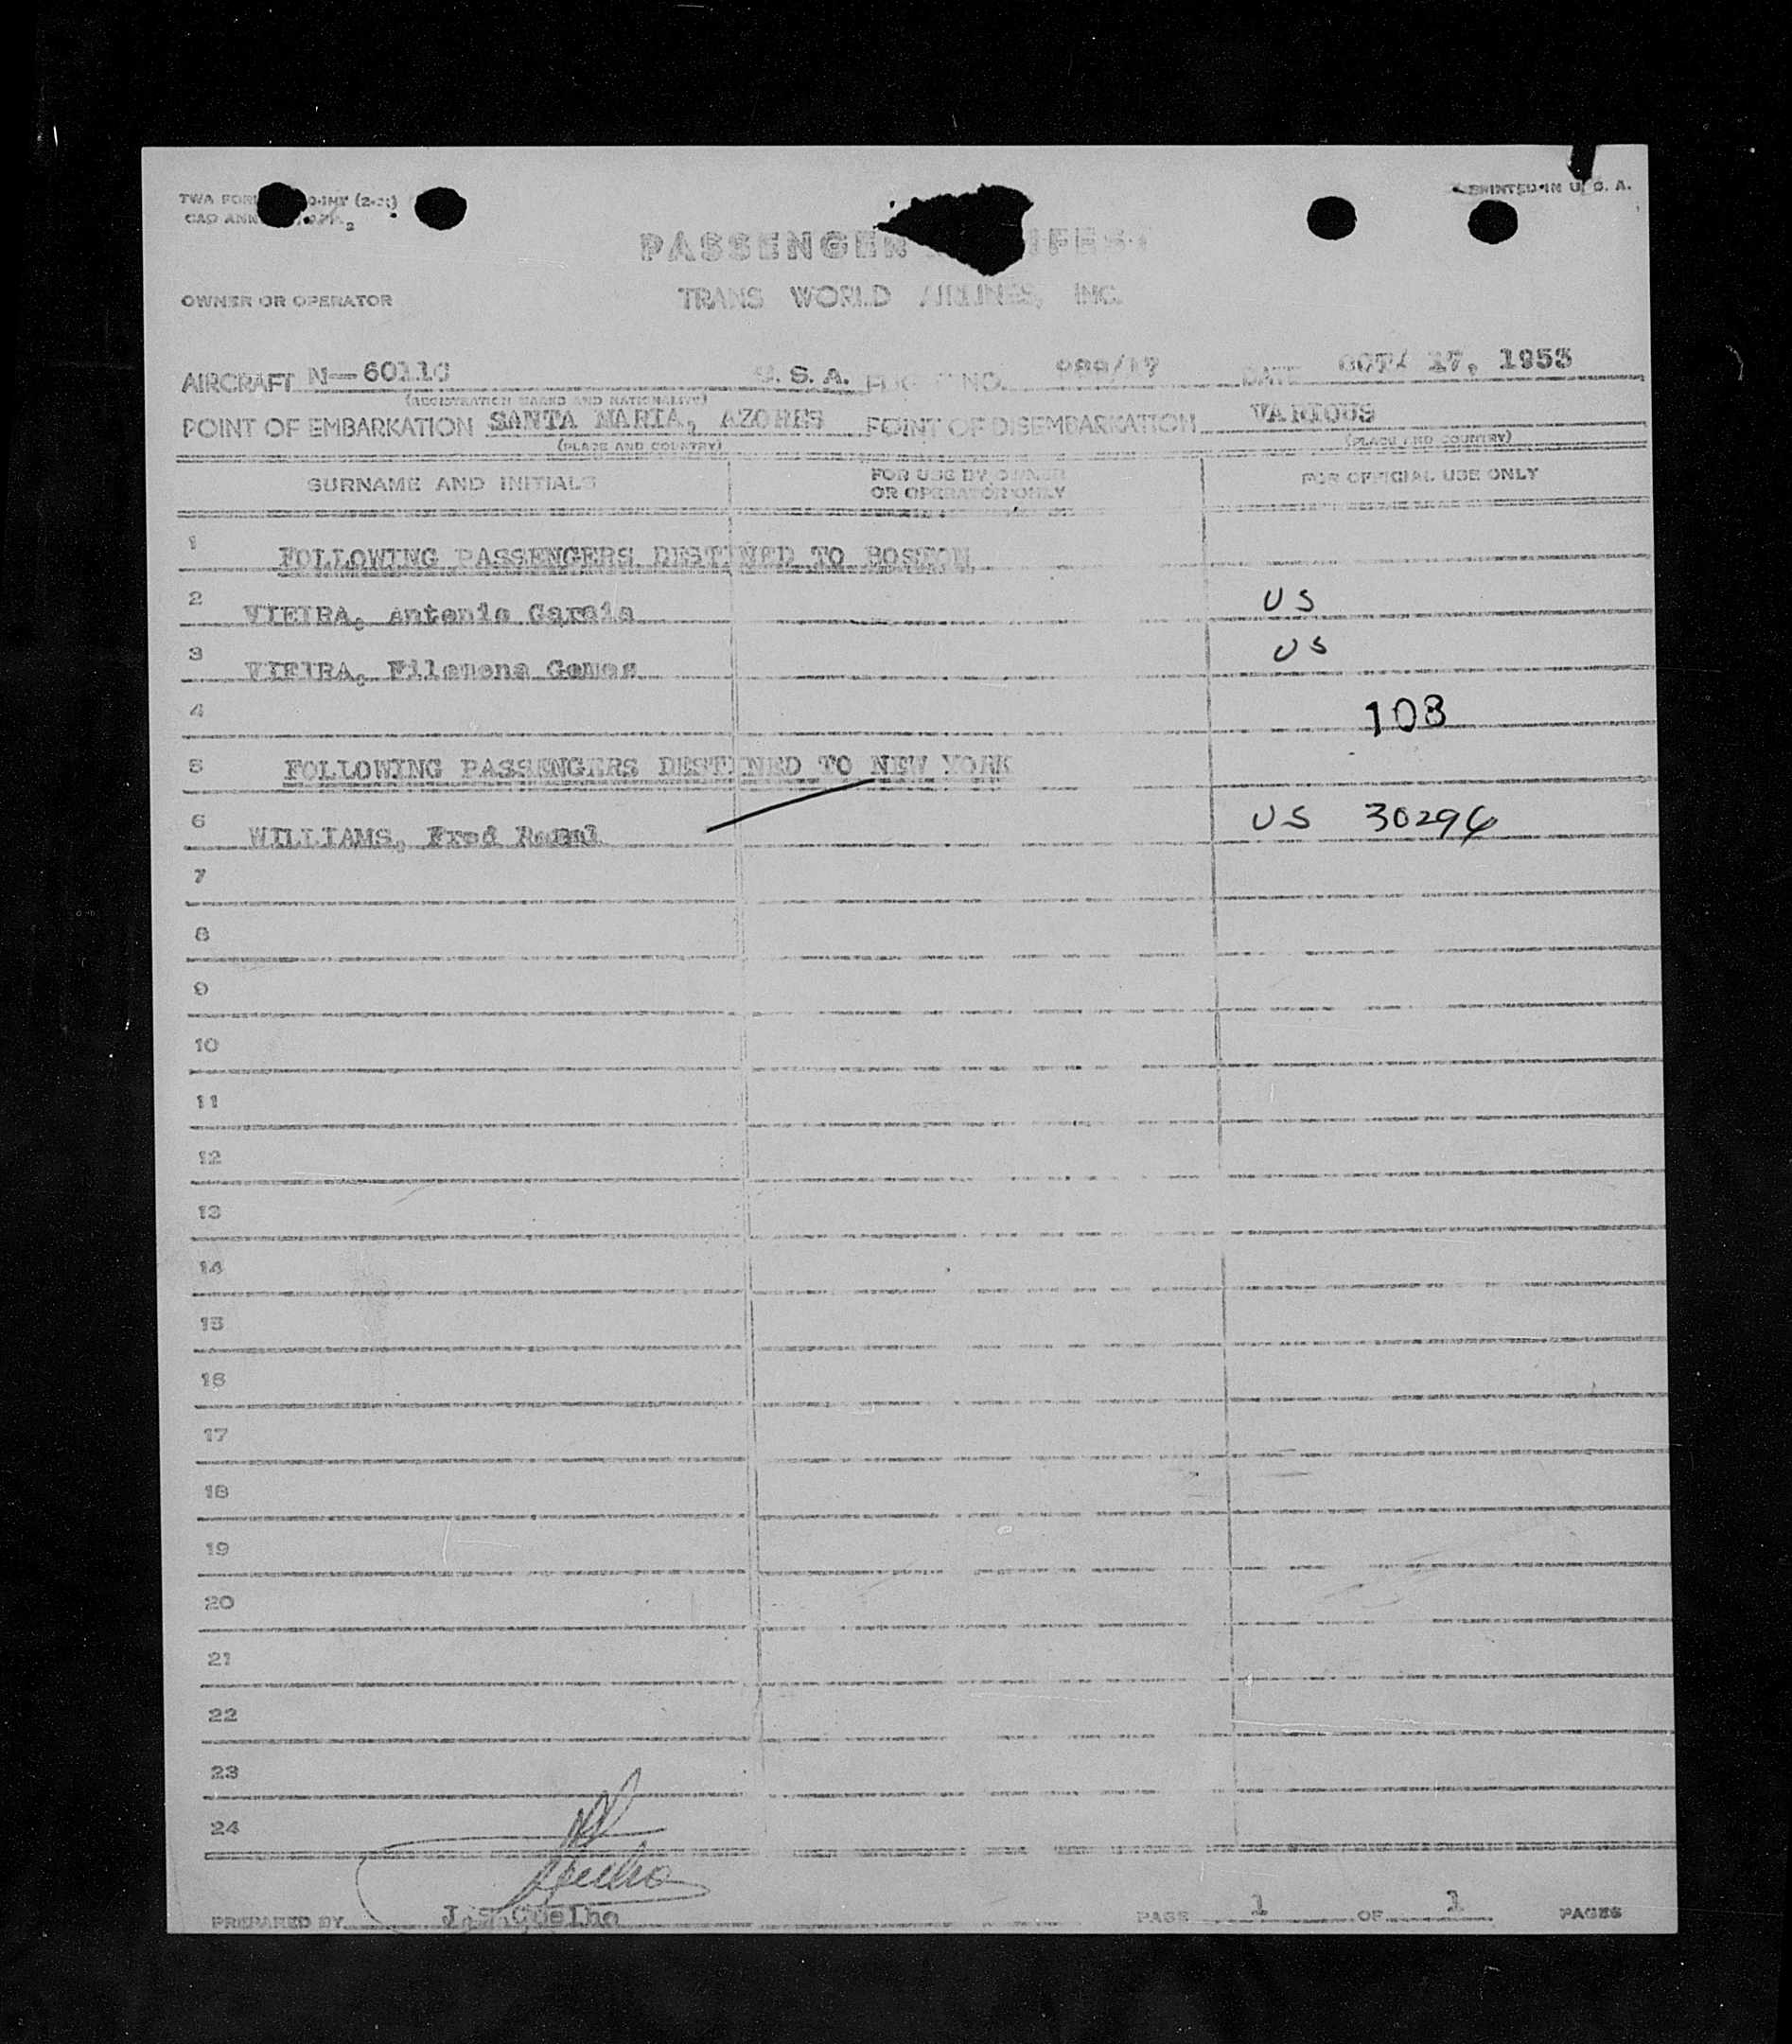 TWA FORM (2-51)
PRINTED IN U. S. A.
PASSENGER
TRANS WORLD AIRLINES, INC.
OWNER OR OPERATOR
AIRCRAFT N-60110 U. S. A. NO. DATE OCT. 17, 1953
(REGISTRATION MARKS AND NATIONALITY)
POINT OF EMBARKATION SANTA MARIA, AZORES POINT OF DISEMBARKATION VARIOUS
(PLACE AND COUNTRY) (PLACE AND COUNTRY)
SURNAME AND INITIALS FOR USE BY OWNER OR OPERATOR ONLY FOR OFFICIAL USE ONLY
1 FOLLOWING PASSENGERS DESTINED TO BOSTON
2 VIEIRA, Antonio Garcia US
3 VIEIRA, Filomena Gomes US
4 108
5 FOLLOWING PASSENGERS DESTINED TO NEW YORK
6 WILLIAMS, Fred US 30296
7
8
9
10
11
12
13
14
15
16
17
18
19
20
21
22
23
24
PREPARED BY Coelho PAGE 1 OF 1 PAGES